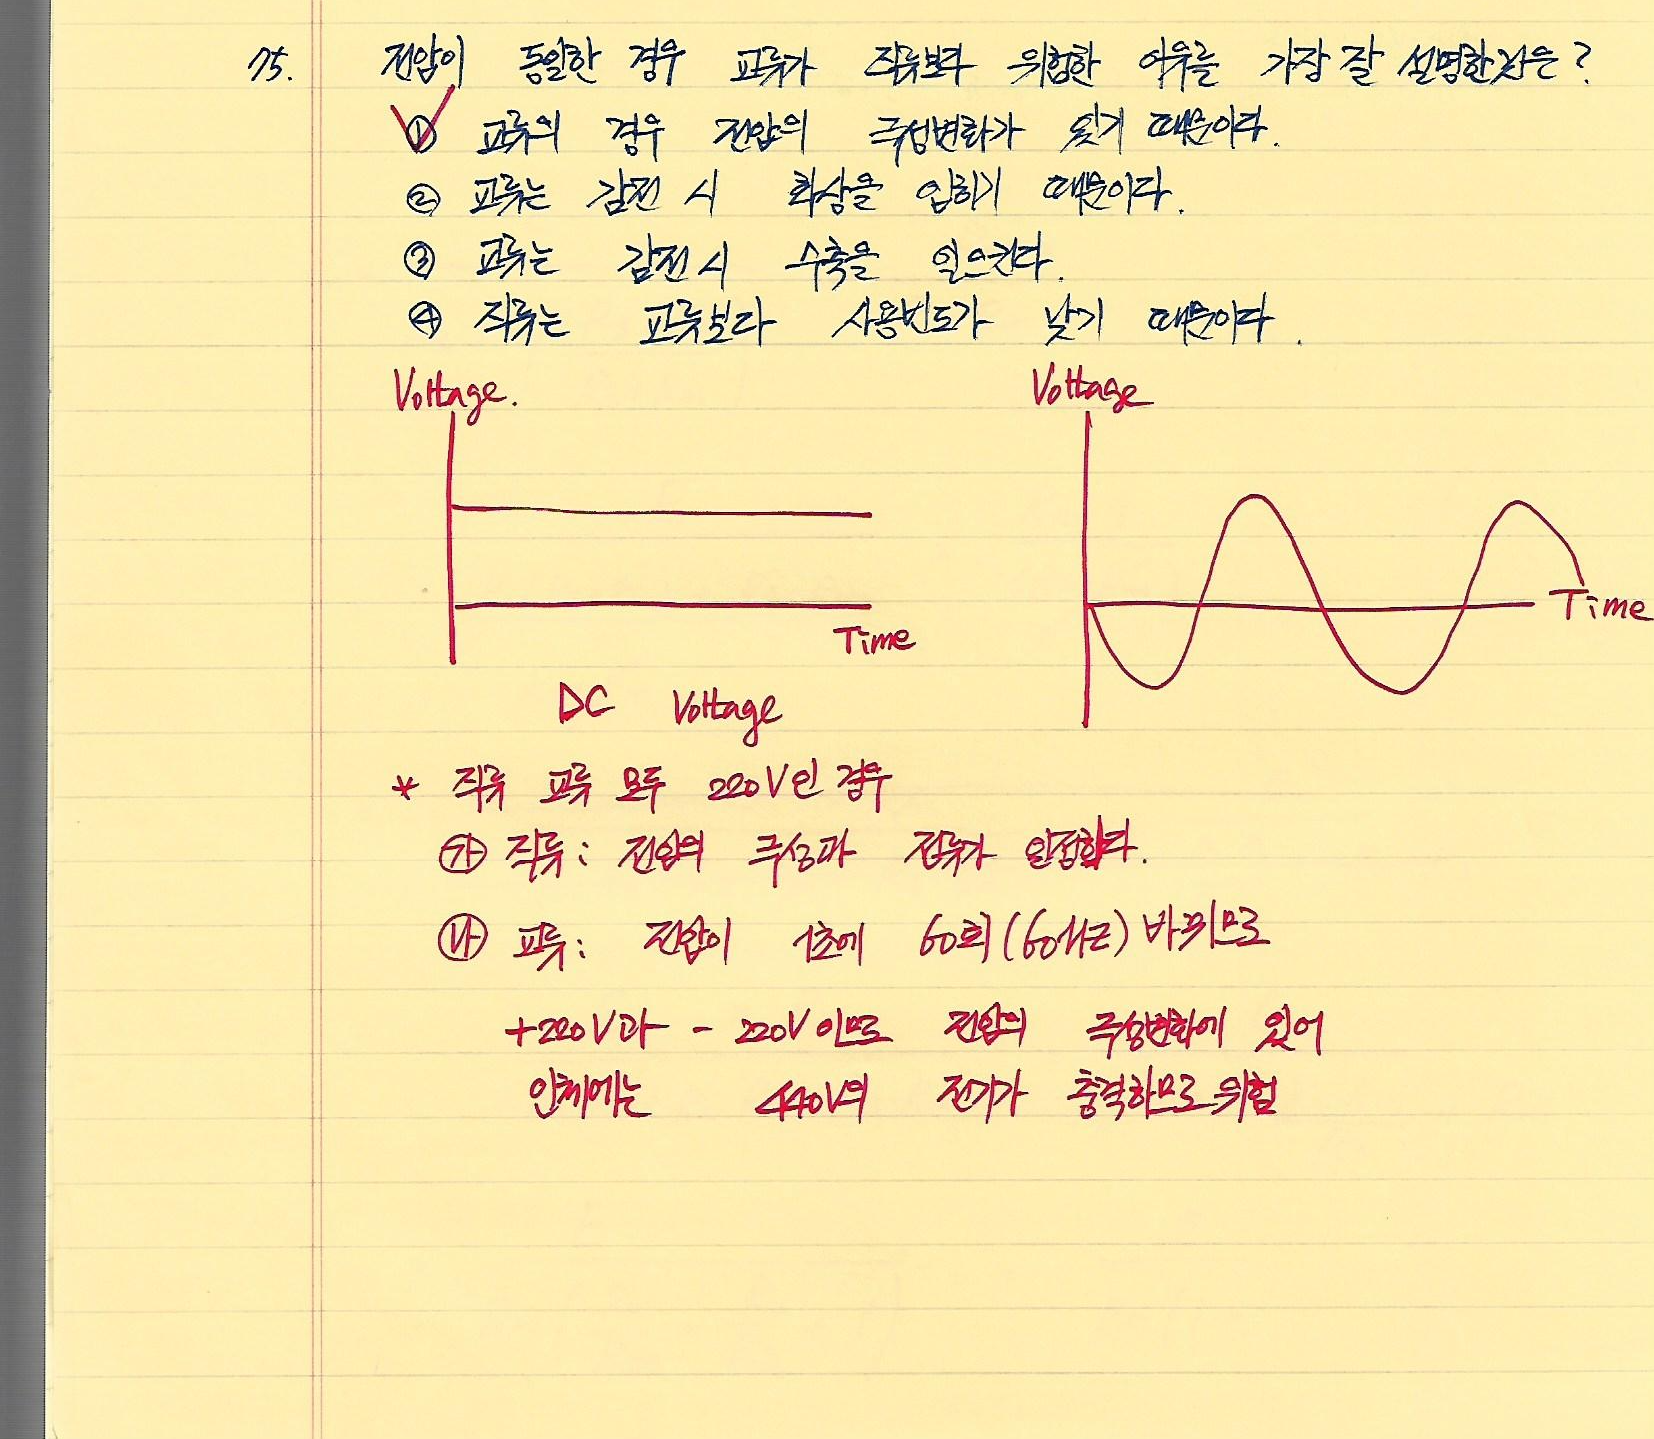 75. 전압이 동일한 경우 교류가 직류보다 위험한 이유를 가장 잘 설명한것은?
① 교류의 경우 전압의 극성변화가 있기 때문이다.
② 교류는 감전 시 화상을 입히기 때문이다.
③ 교류는 감전시 수축을 일으킨다.
④ 직류는 교류보다 사용빈도가 낮기 때문이다.
Voltage.
Voltage
Time
Time
DC Voltage
* 직류 교류 모두 220V인 경우
㉮ 직류: 전압의 극성과 전류가 일정하다.
㉯ 교류: 전압이 1초에 60회(60Hz) 바뀌므로
+220V과 - 220V이므로 전압의 극성변화에 있어
인체에는 440V의 전기가 충격하므로 위험